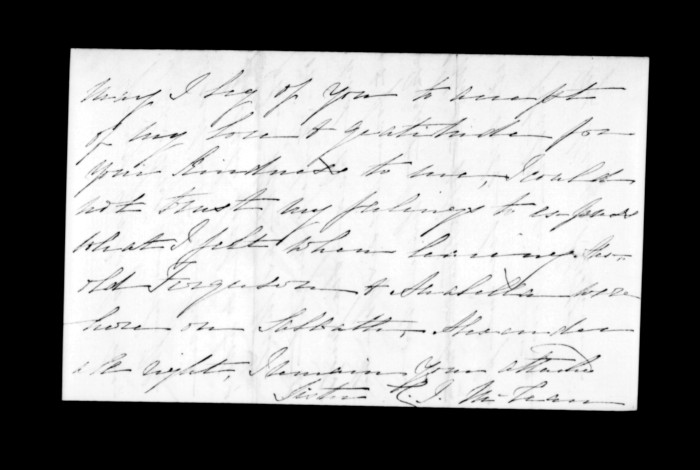 May I beg of you to accept
of my love & gratitude for
your kindness to me, I could
not trust my feelings to express
what I felt when leaving.
old Ferguson & were
here on Sabbath,
all right, I remain your attached
Sister J. McLean